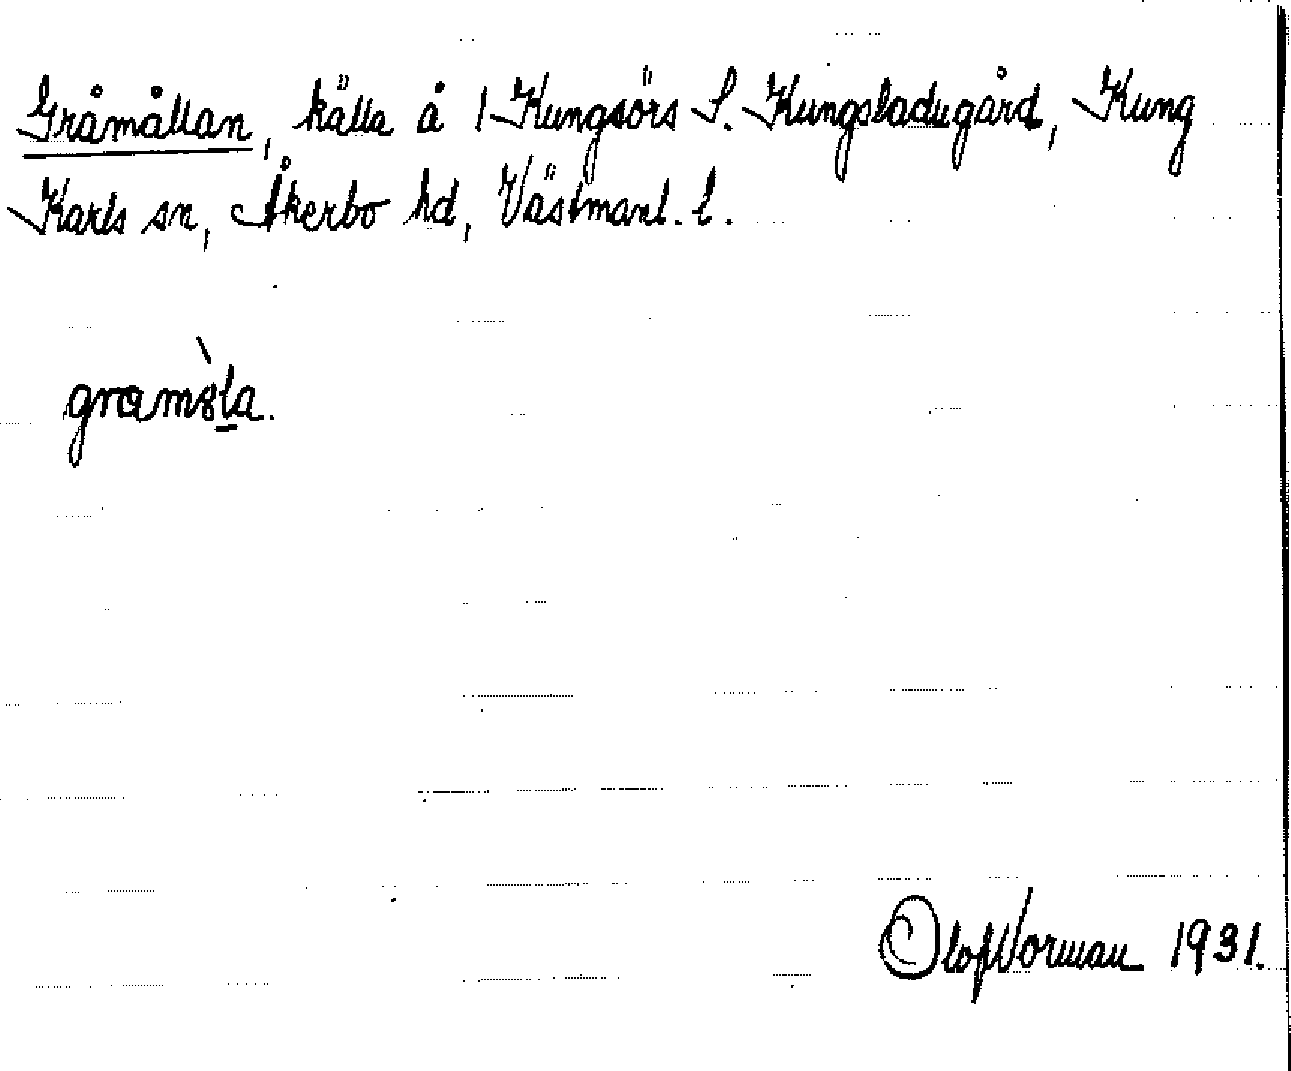 Gråmållan, källa å 1 Kungsörs S. Kungsladugård, Kung
Karls sn, Åkerbo hd, Västmanl. l.
Olof Norman 1931.